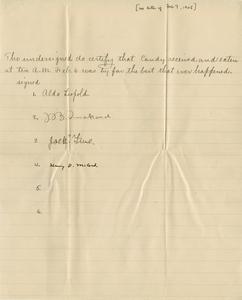 The undersigned do certify that Candy received and eaten
at ten A.M. Feb. 6 was by far the best that ever happened.
signed
1. Aldo Leopold
2.
3. Jack
4. Henry
5.
6.